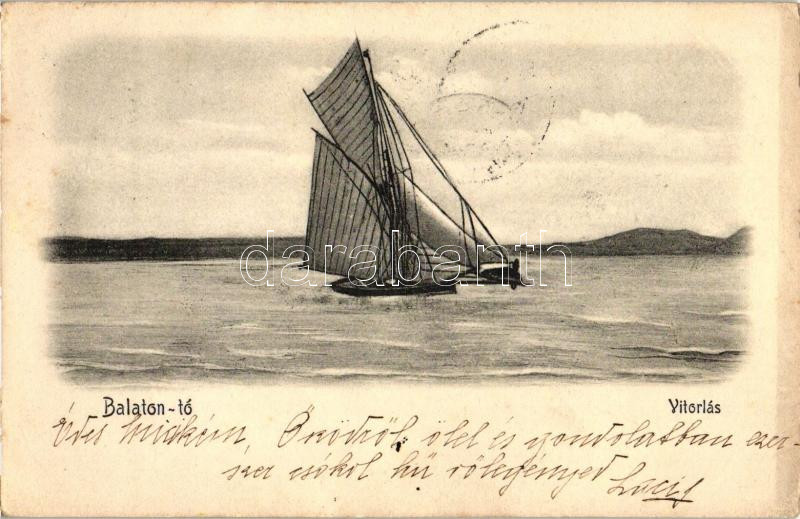 darabanth
Balaton-tó
Vitorlás
Édes
Őszödről ölel és gondolatban ezer-
szer csókol hű vőlegényed